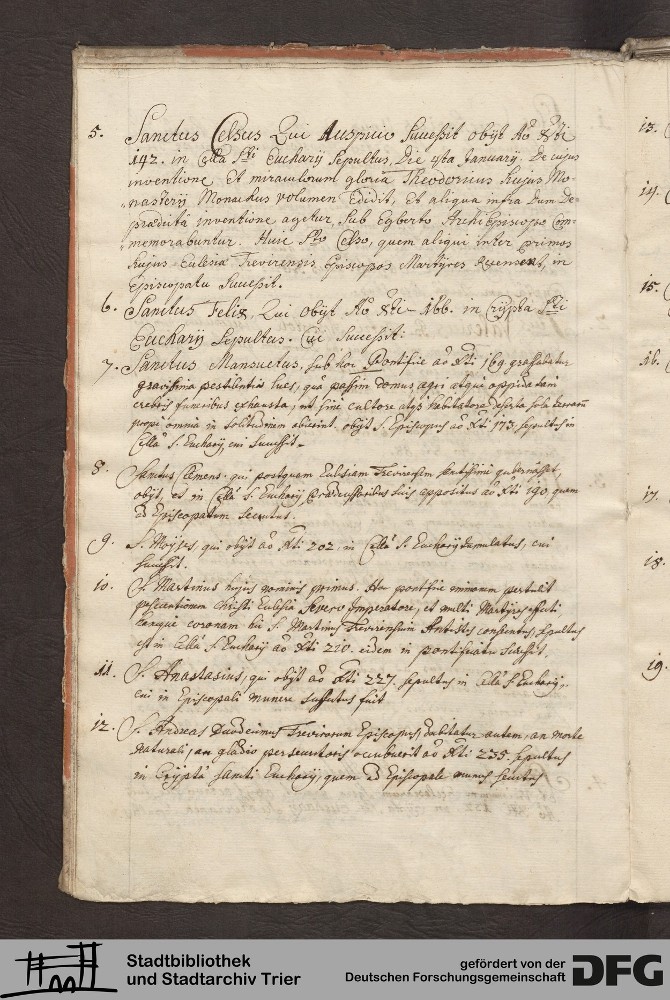 5. Sanctus Celsus Qui Auspicio Successit obyt Aõ Xti
142. in Cella Sti Eucharij Sepultus, Die 4ta January. De cujus
inventione, Et miraculorum gloria Theodoricus hujus Mo-
nasterij Monachus volumen Edidit, Et aliqua infra dum De
prædicta inventione agetur, Sub Egberto ArchiEpiscopo Com-
memorabuntur. Huic Sto Celso, quem aliqui inter primos
hujus Eulesia Trevirensis Episcopos Martyres recensent, in
Episcopatu Successit.
6. Sanctus Felix, Qui obijt Aõ Xti 166. in Crypta Sti
Eucharij Sepultus. Cui Successit:
7. Sanctus Mansuetus, sub hoc Pontifice aõ Xti 169. grassabatur
gravissima pestilentiæ lues, quâ passim domus, agri atque oppida tam
crebris funeribus exhausta, ut sine cultore atque habitatore deserta sola terrarum
prope omnia in Solitudinem abierint. obijt S. Episcopus aõ Xti 173. sepultus in
Cellâ S. Eucharij, cui Successit.
8. Sanctus Clemens. qui postquam Eulesiam Trevirensem sanctissime gubernasset,
obijt, et in Cellâ S. Eucharij Prædecessoribus suis appositus aõ Xti 190, quem
ad Episcopatum Secutus.
9. S. Moyses, qui obijt aõ Xti 202, in Cellâ S. Eucharij tumulatus, cui
successit.
10. S. Martinus hujus nominis primus. Hoc pontifice minorem pertulit
persecutionem Christi Eulesia Severo Imperatore, et multi Martyrij effecti
coronam hic S. Martinus Trevirensium Antistes consecutus, Sepultus
est in Cellâ S. Eucharij aõ Xti 210. eidem in pontificatu Successit.
11. S. Anastasius, qui obijt aõ Xti 227. sepultus in Cellâ S. Eucharij,
cui in Episcopali munere suffectus fuit
12. S. Andreas Duodecimus Trevirorum Episcopus, dubitatur autem, an morte
naturali, an gladio persecutoris occubuerit aõ Xti 235. sepultus
in Cryptâ Sancti Eucharij, quem ad Episcopale munus secutus
13.
14.
15.
16.
17.
18.
19.
Stadtbibliothek
und Stadtarchiv Trier
gefördert von der
Deutschen Forschungsgemeinschaft
DFG